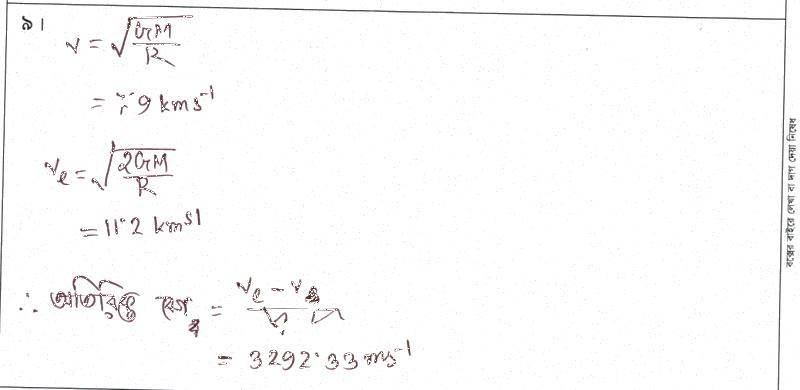 ৯।
v = √(GM/R)
= 7.9 kms⁻¹
vₑ = √(2GM/R)
= 11.2 kms⁻¹
∴ অতিরিক্ত বেগ = vₑ - v
= 3292.33 ms⁻¹
বক্সের বাইরে লেখা বা দাগ দেয়া নিষেধ